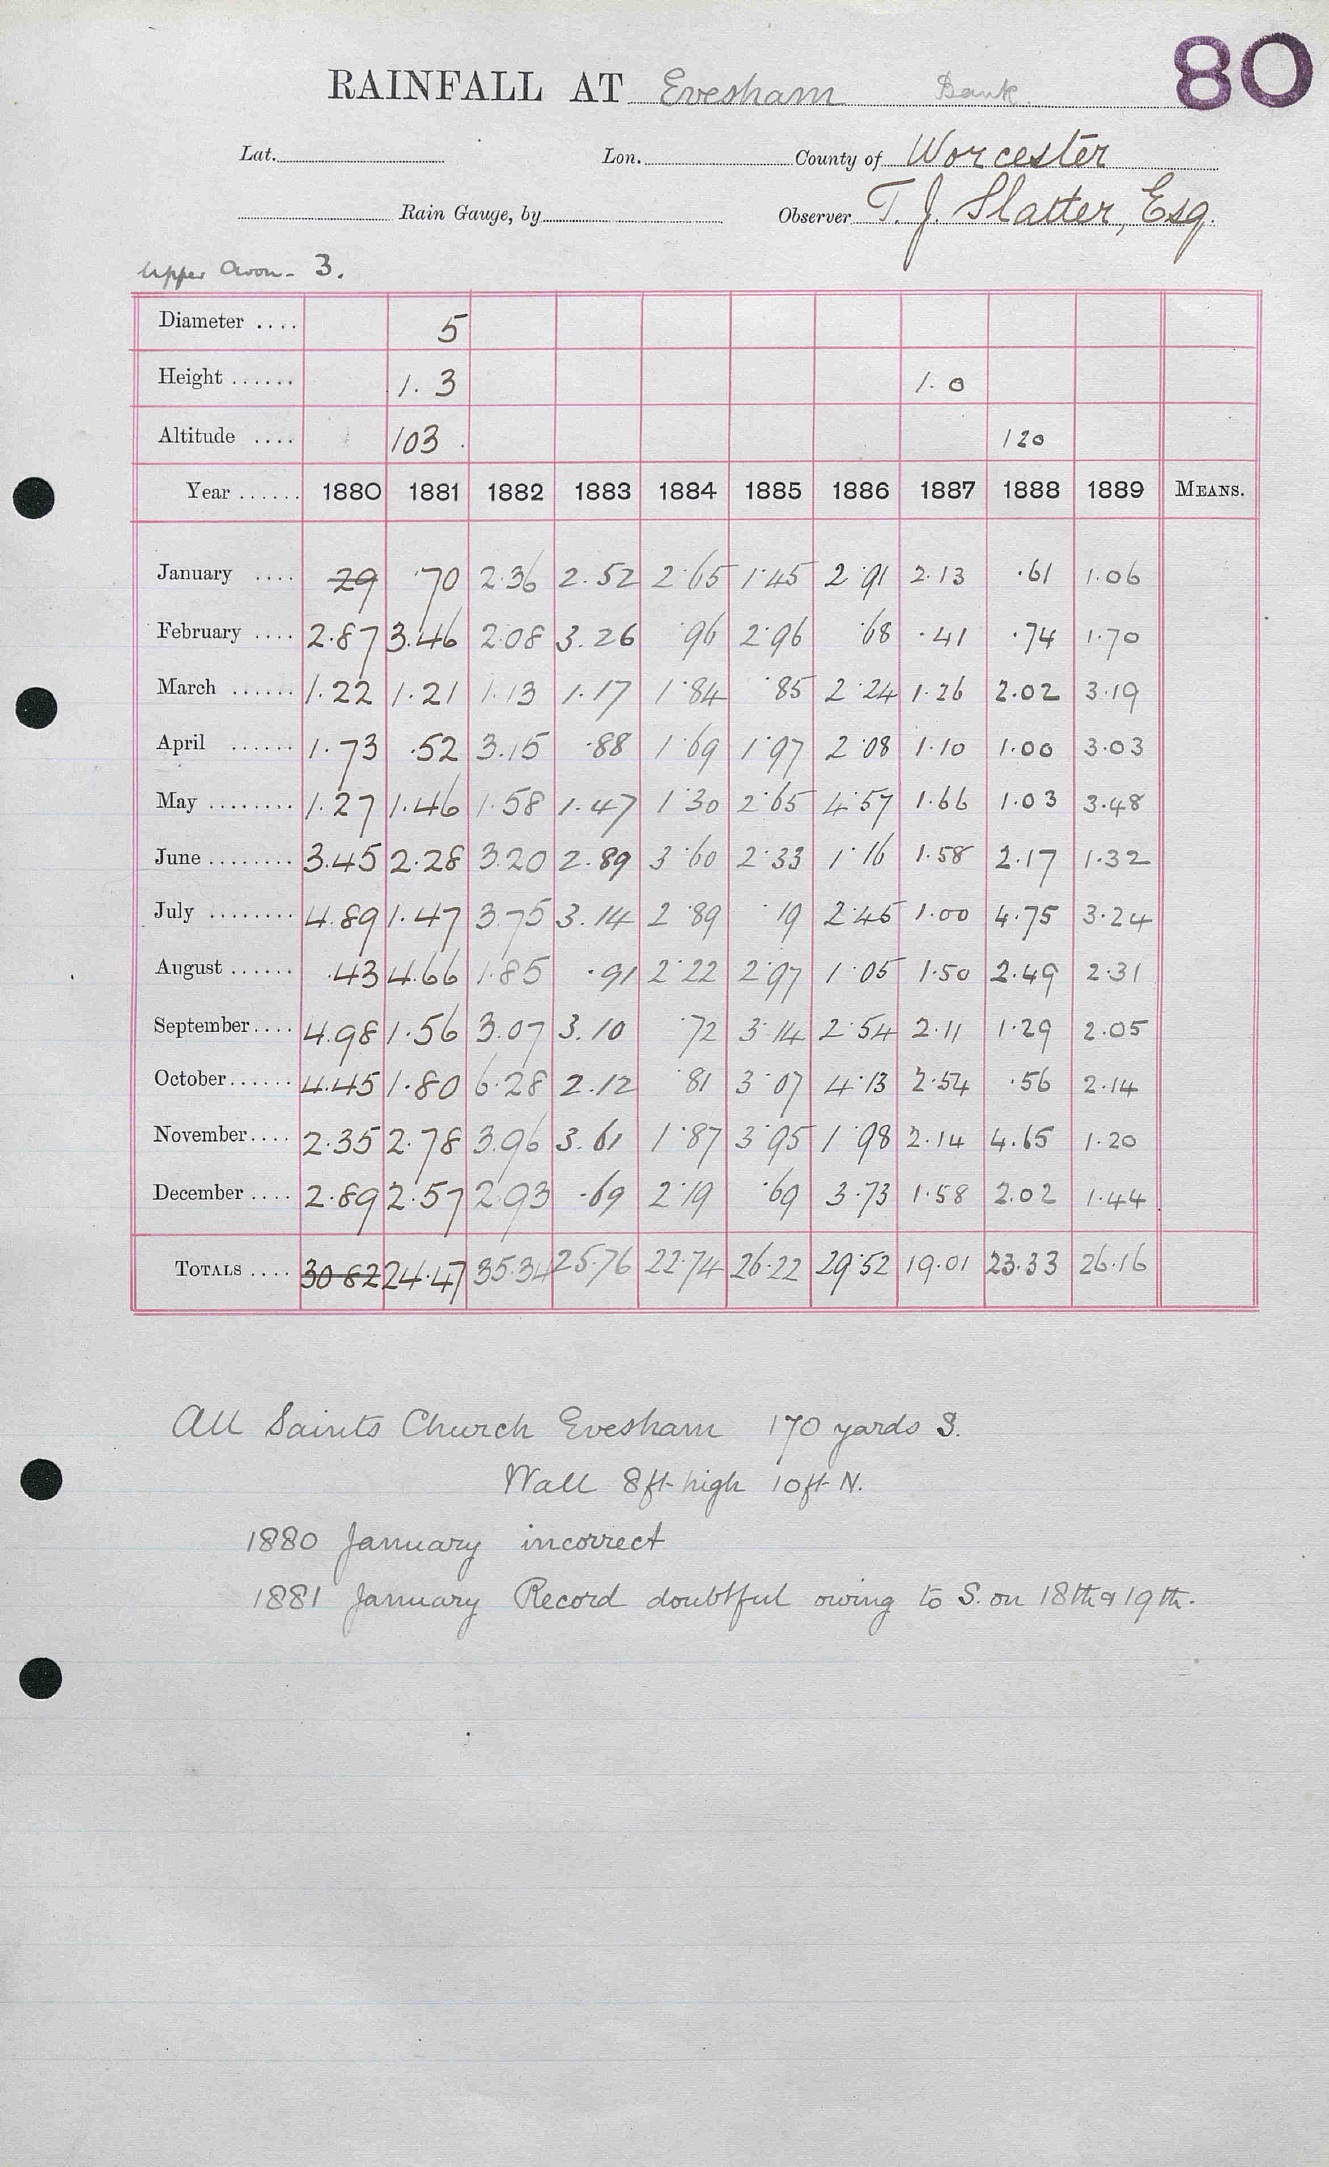 80
RAINFALL AT Evesham Bank.
Lat. Lon. County of Worcester
Rain Gauge, by Observer T. J. Slatter, Esq.
Upper Avon - 3.
Diameter .... 5
Height ...... 1.3 1.0
Altitude .... 103 120
Year ...... 1880 1881 1882 1883 1884 1885 1886 1887 1888 1889 MEANS.
January .... 29 .70 2.36 2.52 2.65 1.45 2.91 2.13 .61 1.06
February .... 2.87 3.46 2.08 3.26 .96 2.96 .68 .41 .74 1.70
March ...... 1.22 1.21 1.13 1.17 1.84 .85 2.24 1.26 2.02 3.19
April ...... 1.73 .52 3.15 .88 1.69 1.97 2.08 1.10 1.00 3.03
May ........ 1.27 1.46 1.58 1.47 1.30 2.65 4.57 1.66 1.03 3.48
June ........ 3.45 2.28 3.20 2.89 3.60 2.33 1.16 1.58 2.17 1.32
July ........ 4.89 1.47 3.75 3.14 2.89 .19 2.45 1.00 4.75 3.24
August ...... .43 4.66 1.85 .91 2.22 2.97 1.05 1.50 2.49 2.31
September .... 4.98 1.56 3.07 3.10 .72 3.14 2.54 2.11 1.29 2.05
October ...... 4.45 1.80 6.28 2.12 .81 3.07 4.13 2.54 .56 2.14
November .... 2.35 2.78 3.96 3.61 1.87 3.95 1.98 2.14 4.65 1.20
December .... 2.89 2.57 2.93 .69 2.19 .69 3.73 1.58 2.02 1.44
TOTALS .... 30.82 24.47 35.34 25.76 22.74 26.22 29.52 19.01 23.33 26.16
All Saints Church Evesham 170 yards S.
Wall 8ft high 10ft N.
1880 January incorrect
1881 January Record doubtful owing to S. on 18th & 19th.